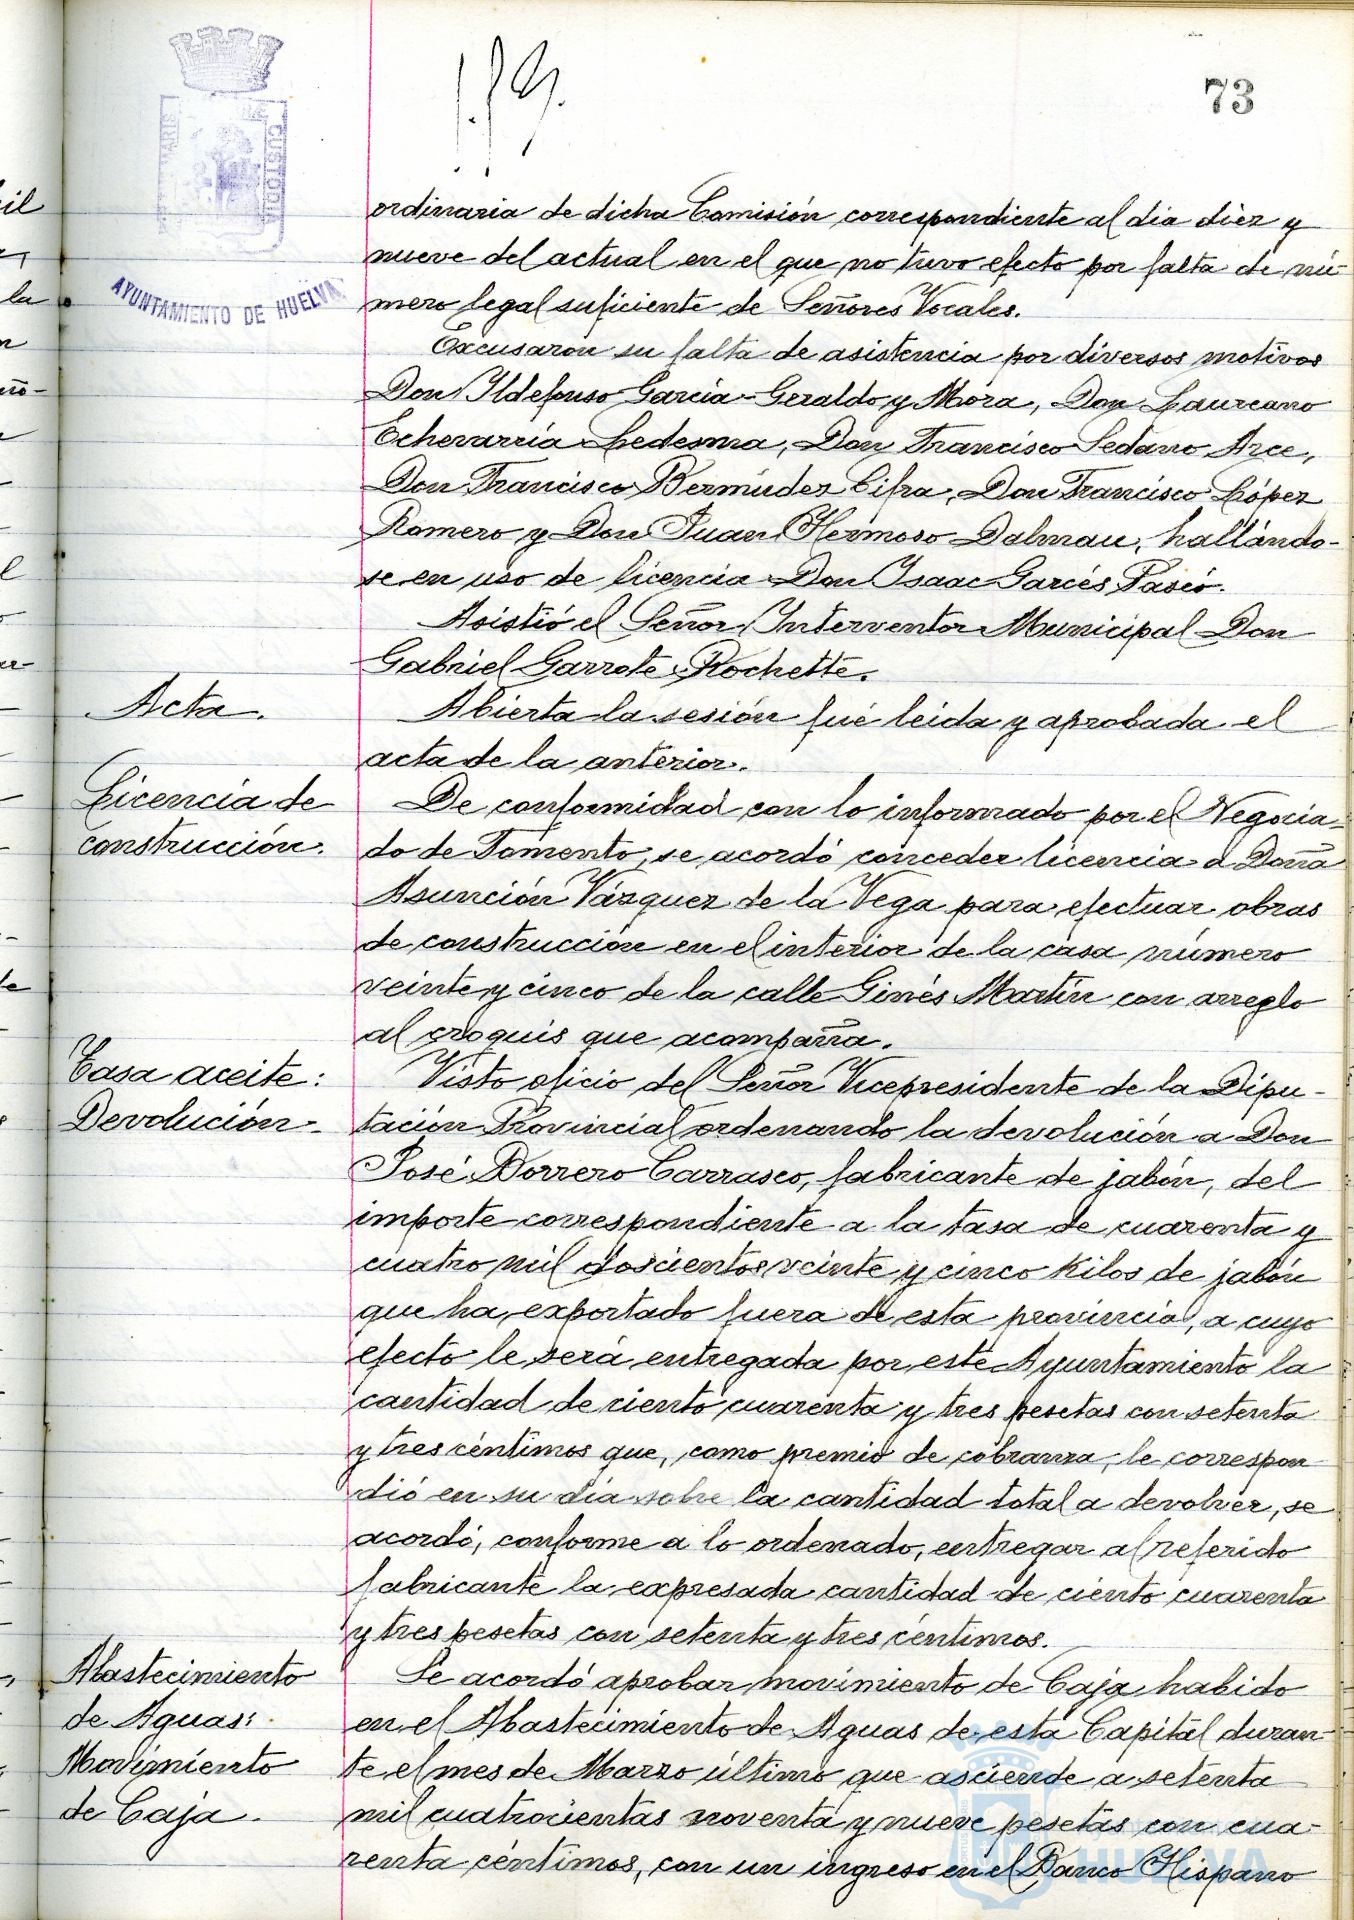 73
PORTUS MARIS ET TERRÆ CUSTODIA
AYUNTAMIENTO DE HUELVA
ordinaria de dicha Comisión correspondiente al dia diez y
nueve del actual en el que no tuvo efecto por falta de nú-
mero legal suficiente de Señores Vocales.
Excusaron su falta de asistencia por diversos motivos
Don Ildefonso García-Geraldo y Mora, Don Laureano
Echevarría Ledesma, Don Francisco Sedano Arce,
Don Francisco Bermúdez Cifra, Don Francisco López
Romero y Don Juan Hermoso Dalmau, hallándo-
se en uso de licencia Don Isaac Garcés Paseo.
Asistió el Señor Interventor Municipal Don
Gabriel Garrote Rochette.
Acta.
Abierta la sesión fué leida y aprobada el
acta de la anterior.
Licencia de
construcción.
De conformidad con lo informado por el Negocia-
do de Fomento, se acordó conceder licencia a Doña
Asunción Vázquez de la Vega para efectuar obras
de construcción en el interior de la casa número
veinte y cinco de la calle Ginés Martín con arreglo
al croquis que acompaña.
Tasa aceite:
Devolución.
Visto oficio del Señor Vicepresidente de la Dipu-
tación Provincial ordenando la devolución a Don
José Borrero Carrasco, fabricante de jabón, del
importe correspondiente a la tasa de cuarenta y
cuatro mil doscientos veinte y cinco kilos de jabón
que ha exportado fuera de esta provincia, a cuyo
efecto le será entregada por este Ayuntamiento la
cantidad de ciento cuarenta y tres pesetas con setenta
y tres céntimos que, como premio de cobranza, le correspon
dió en su día sobre la cantidad total a devolver, se
acordó, conforme a lo ordenado, entregar al referido
fabricante la expresada cantidad de ciento cuarenta
y tres pesetas con setenta y tres céntimos.
Abastecimiento
de Aguas:
Movimiento
de Caja.
Se acordó aprobar movimiento de Caja habido
en el Abastecimiento de Aguas de esta Capital duran-
te el mes de Marzo último que asciende a setenta
mil cuatrocientas noventa y nueve pesetas con cua-
renta céntimos, con un ingreso en el Banco Hispano
HUELVA